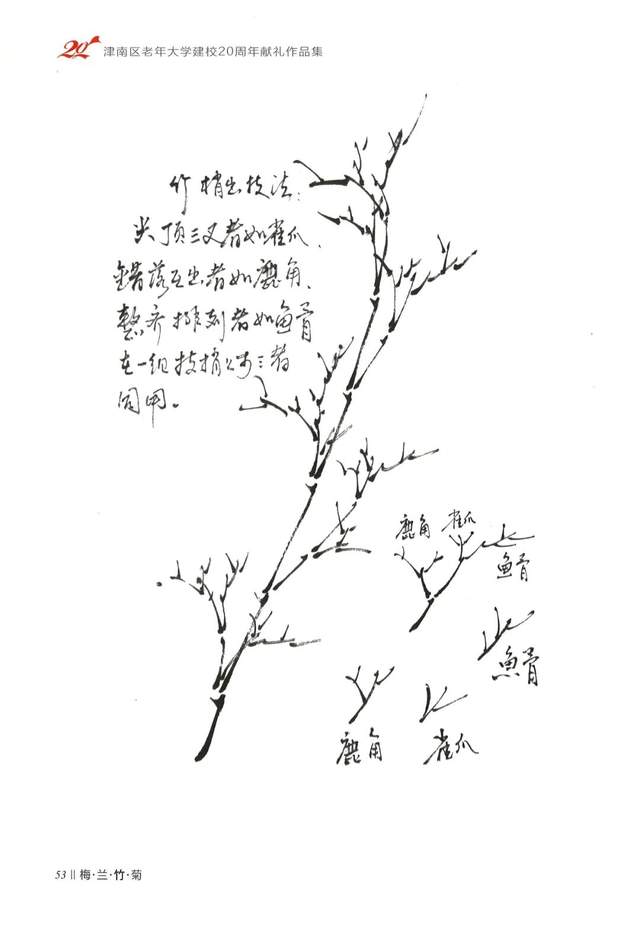 20 津南区老年大学建校20周年献礼作品集
竹梢出枝法：
尖顶三叉者如雀爪、
错落互生者如鹿角、
整齐排列者如鱼骨
在一组枝梢必将三者
同用。
鹿角 雀爪
鱼骨
鱼骨
鹿角
雀爪
53 || 梅·兰·竹·菊